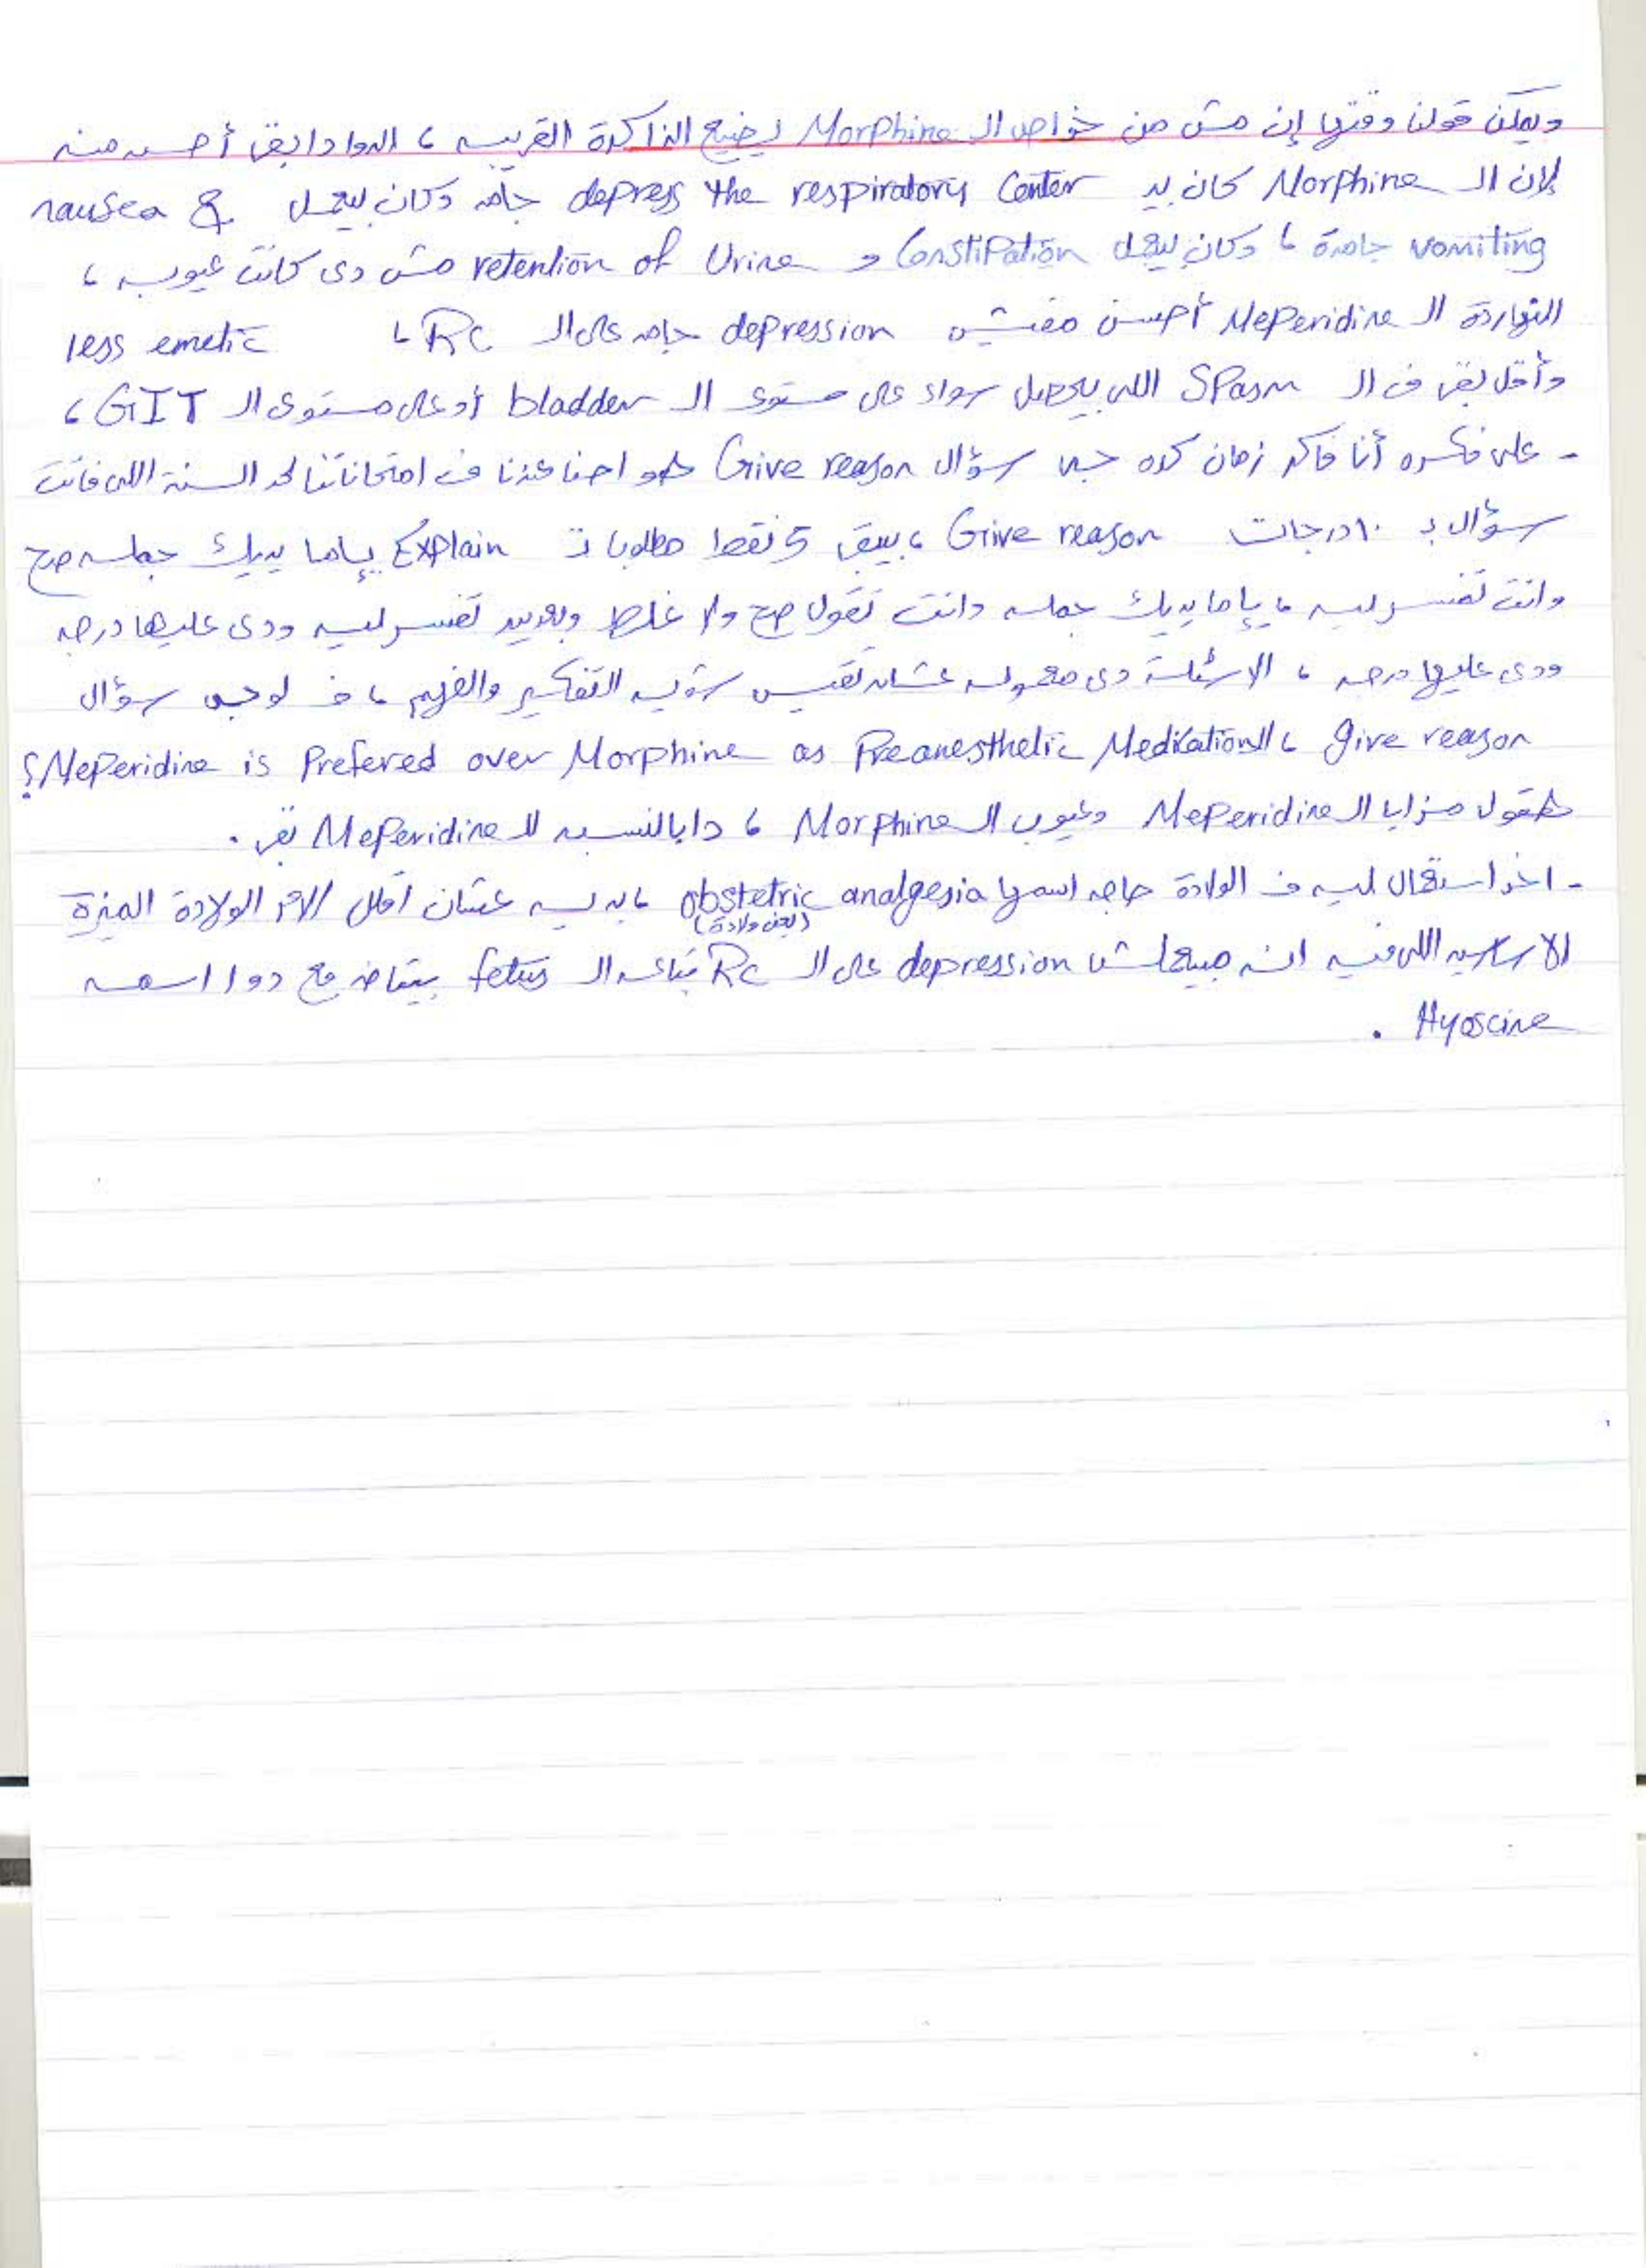 ويمكن قولنا وقتها إن مش من خواص الـ Morphine يضيع الذاكرة القريبه ، الدوا دا بقى أحسن منه
لإن الـ Morphine كان بيـ depress the respiratory Center جامد وكان بيعمل nausea &
vomiting جامدة ، وكان بيعمل Constipation و retention of Urine مش دى كانت عيوبه ،
النهاردة الـ Meperidine أحسن مفيش depression جامد على الـ RC ، less emetic
وأقل بقى فى الـ Spasm اللى بيحصل سواء على مستوى الـ bladder أو على مستوى الـ GIT ،
- على فكره أنا فاكر زمان كده جه سؤال Give reason هو احنا عندنا فى امتحاناتنا لحد السنة اللى فاتت
سؤال بـ ١٠ درجات Give reason ، بيبقى 5 نقط مطلوب Explain يإما يديك جمله صح
وانت تفسر ليه ، يإما يديك جمله وانت تقول صح ولا غلط وبعدين تفسر ليه ودى عليها درجه
ودى عليها درجه ، الاسئلة دى معموله عشان تقيس شويه التفكير والفهم ، فـ لو جه سؤال
give reason ، الـ Meperidine is Prefered over Morphine as Preanesthetic Medication؟
هتقول مزايا الـ Meperidine وعيوب الـ Morphine ، دا بالنسبه للـ Meperidine بقى .
- اخر استعمال ليه فى الولادة حاجه اسمها obstetric analgesia ، بديه عشان اقلل آلام الولادة الميزة
(يعنى ولادة)
الاساسيه اللى فيه انه مبيعملش depression على الـ RC بتاعه الـ fetus بيتاخد مع دوا اسمه
Hyoscine .